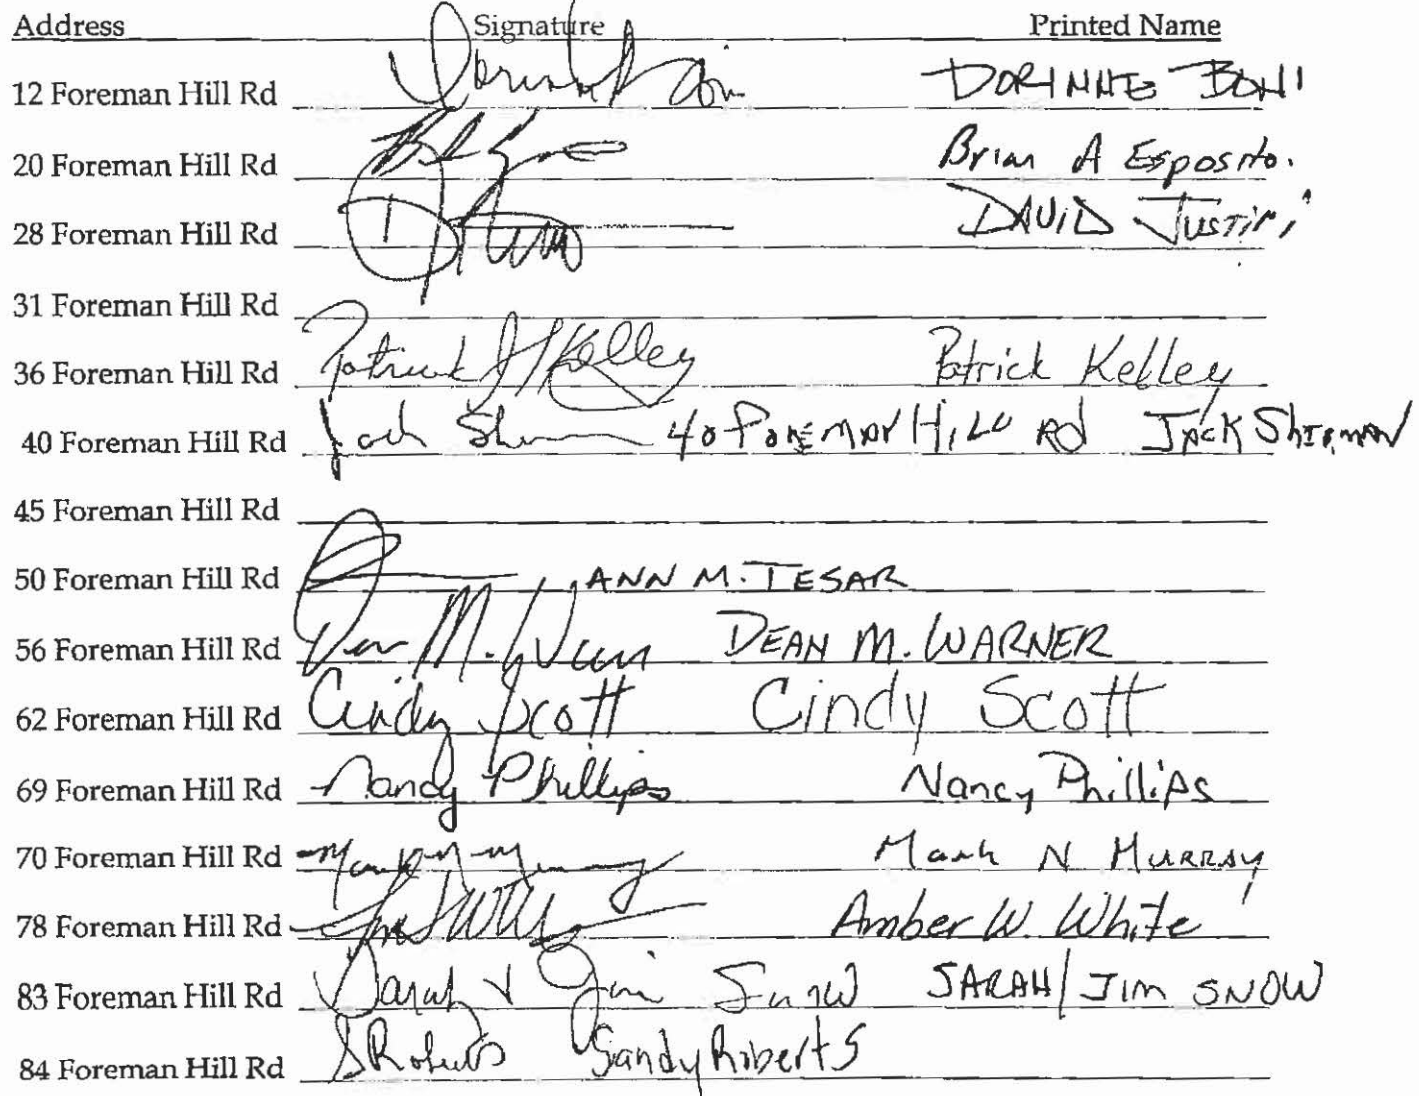 Address Signature Printed Name
12 Foreman Hill Rd DORINNE BONI
20 Foreman Hill Rd Brian A Esposito.
28 Foreman Hill Rd DAVID JUSTINI
31 Foreman Hill Rd
36 Foreman Hill Rd Patrick J Kelley Patrick Kelley
40 Foreman Hill Rd Jack Sherman 40 FOREMAN HILL RD JACK SHERMAN
45 Foreman Hill Rd
50 Foreman Hill Rd ANN M. TESAR
56 Foreman Hill Rd Dean M. Warner DEAN M. WARNER
62 Foreman Hill Rd Cindy Scott Cindy Scott
69 Foreman Hill Rd Nancy Phillips Nancy Phillips
70 Foreman Hill Rd Mark N Murray Mark N MURRAY
78 Foreman Hill Rd Amber W. White
83 Foreman Hill Rd Sarah & Jim Snow SARAH/JIM SNOW
84 Foreman Hill Rd S Roberts Sandy Roberts